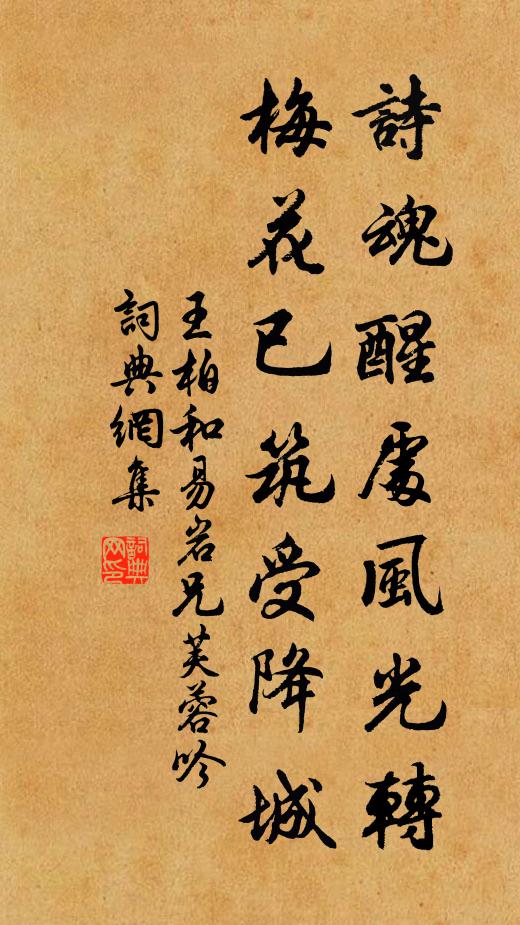 詩魂醒處風光轉
梅花已筑受降城
王柏和易岩兄芙蓉吟
詞典網集
詞典網印